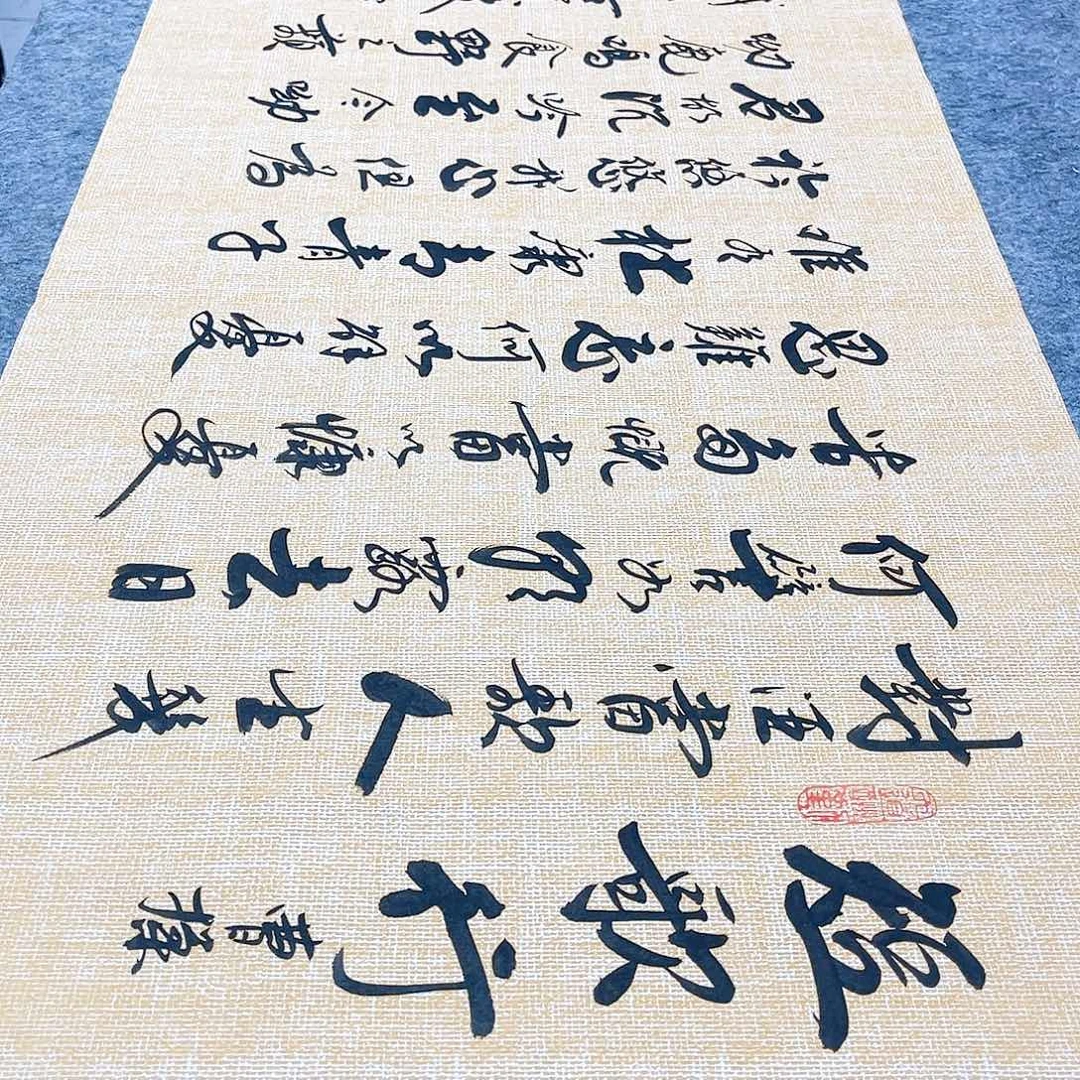 短歌行 曹操
對酒當歌人生幾
何譬如朝露去日
苦多慨當以慷憂
思難忘何以解憂
惟有杜康青青子
衿悠悠我心但爲
君故沉吟至今呦
呦鹿鳴食野之蘋